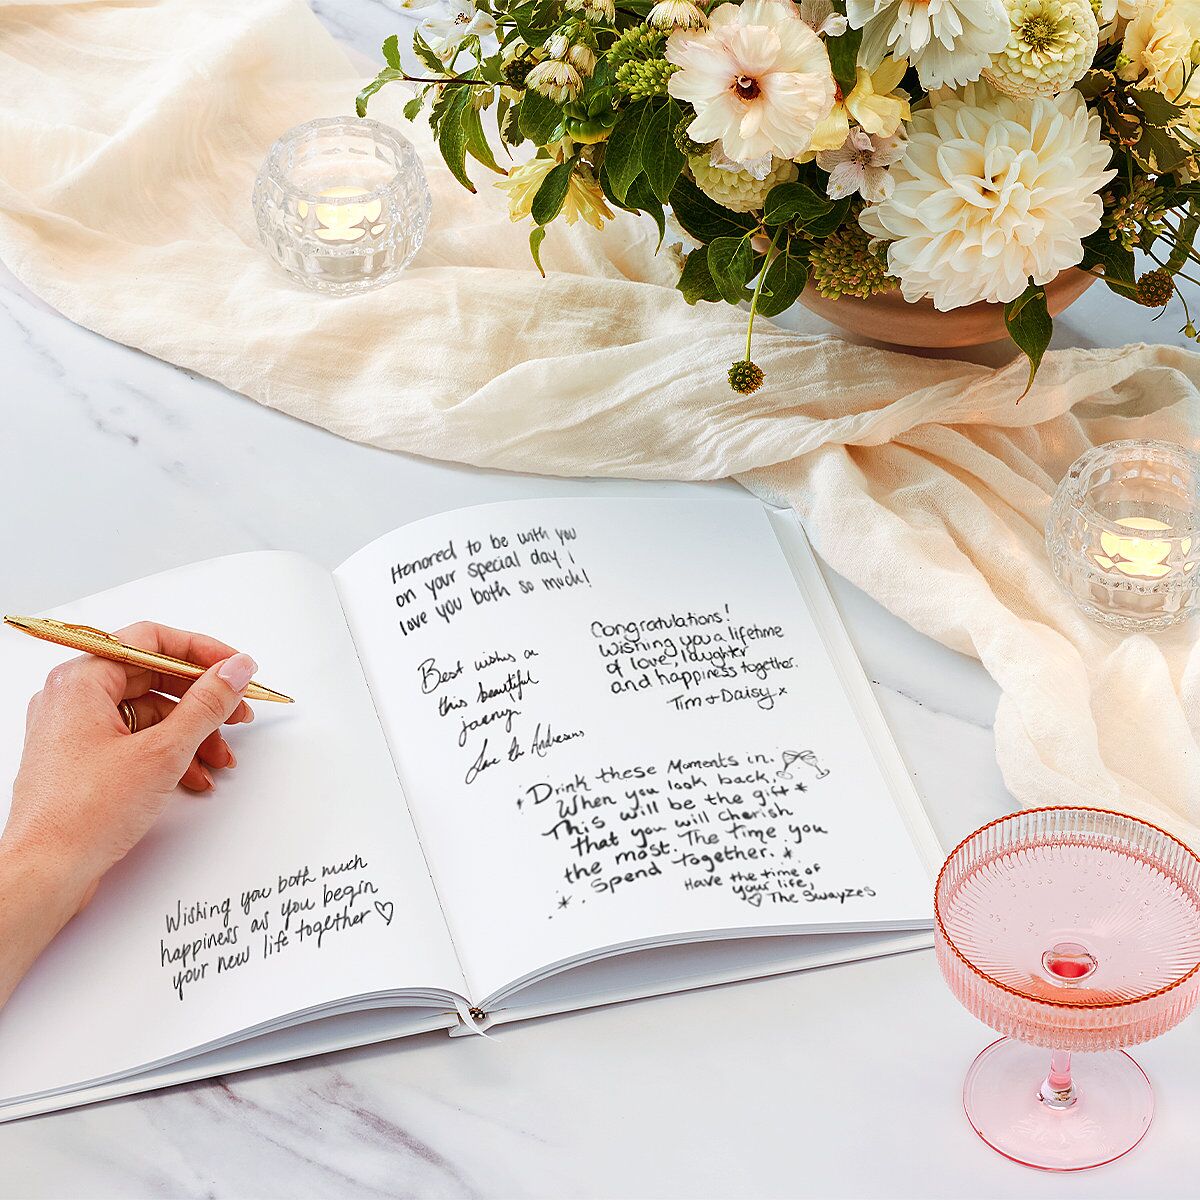 Wishing you both much
happiness as you begin
your new life together ♡
Honored to be with you
on your special day I
love you both so much!
Congratulations!
Wishing you a lifetime
of love, laughter
and happiness together.
Tim + Daisy x
Best wishes on
this beautiful
journey.
Love
Drink these Moments in.
When you look back,
This will be the gift *
that you will cherish
the most. The time you
spend together. *
Have the time of
your life,
♡ The Swayzes